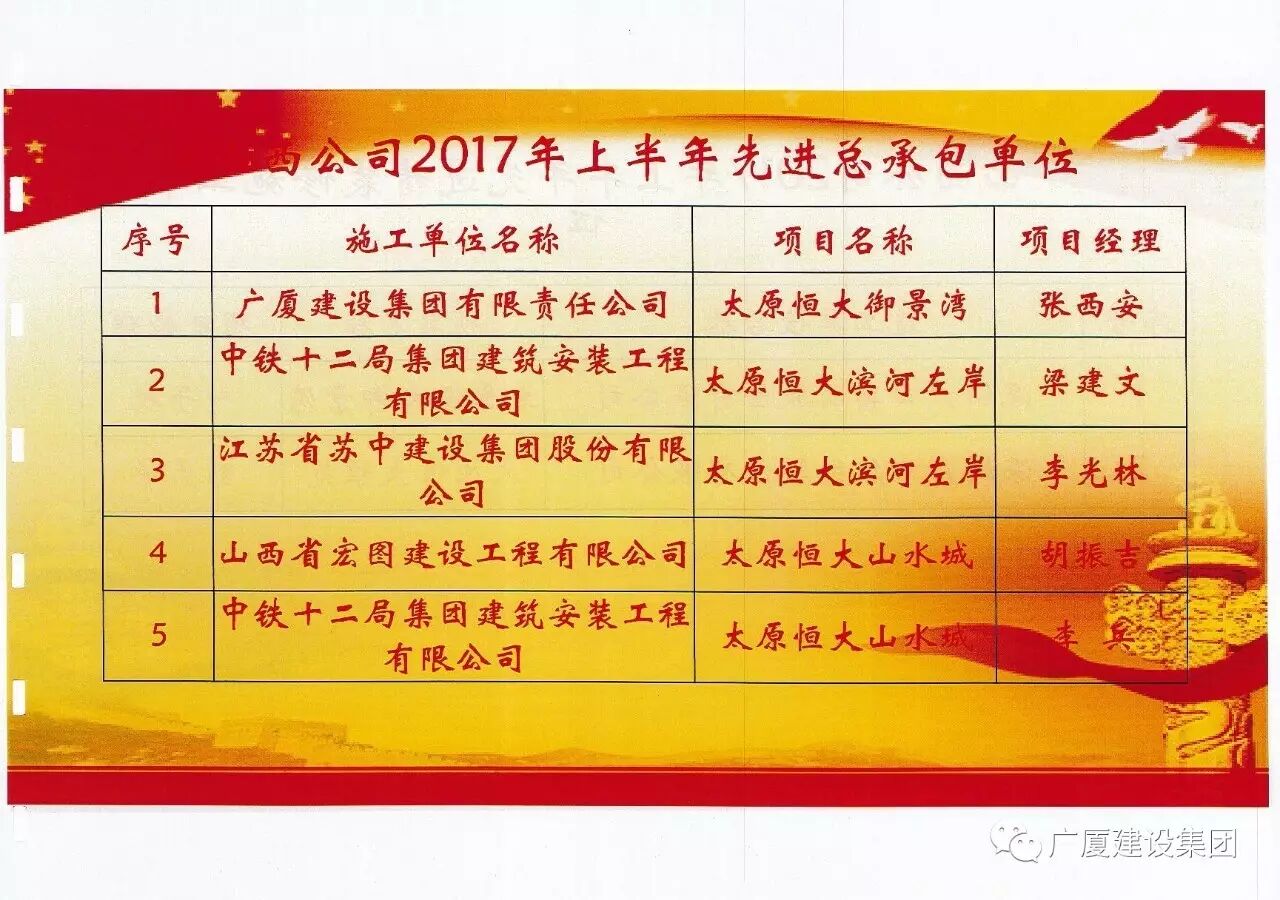 西公司2017年上半年先进总承包单位
序号 施工单位名称 项目名称 项目经理
1 广厦建设集团有限责任公司 太原恒大御景湾 张西安
2 中铁十二局集团建筑安装工程有限公司 太原恒大滨河左岸 梁建文
3 江苏省苏中建设集团股份有限公司 太原恒大滨河左岸 李光林
4 山西省宏图建设工程有限公司 太原恒大山水城 胡振吉
5 中铁十二局集团建筑安装工程有限公司 太原恒大山水城 李兵
广厦建设集团